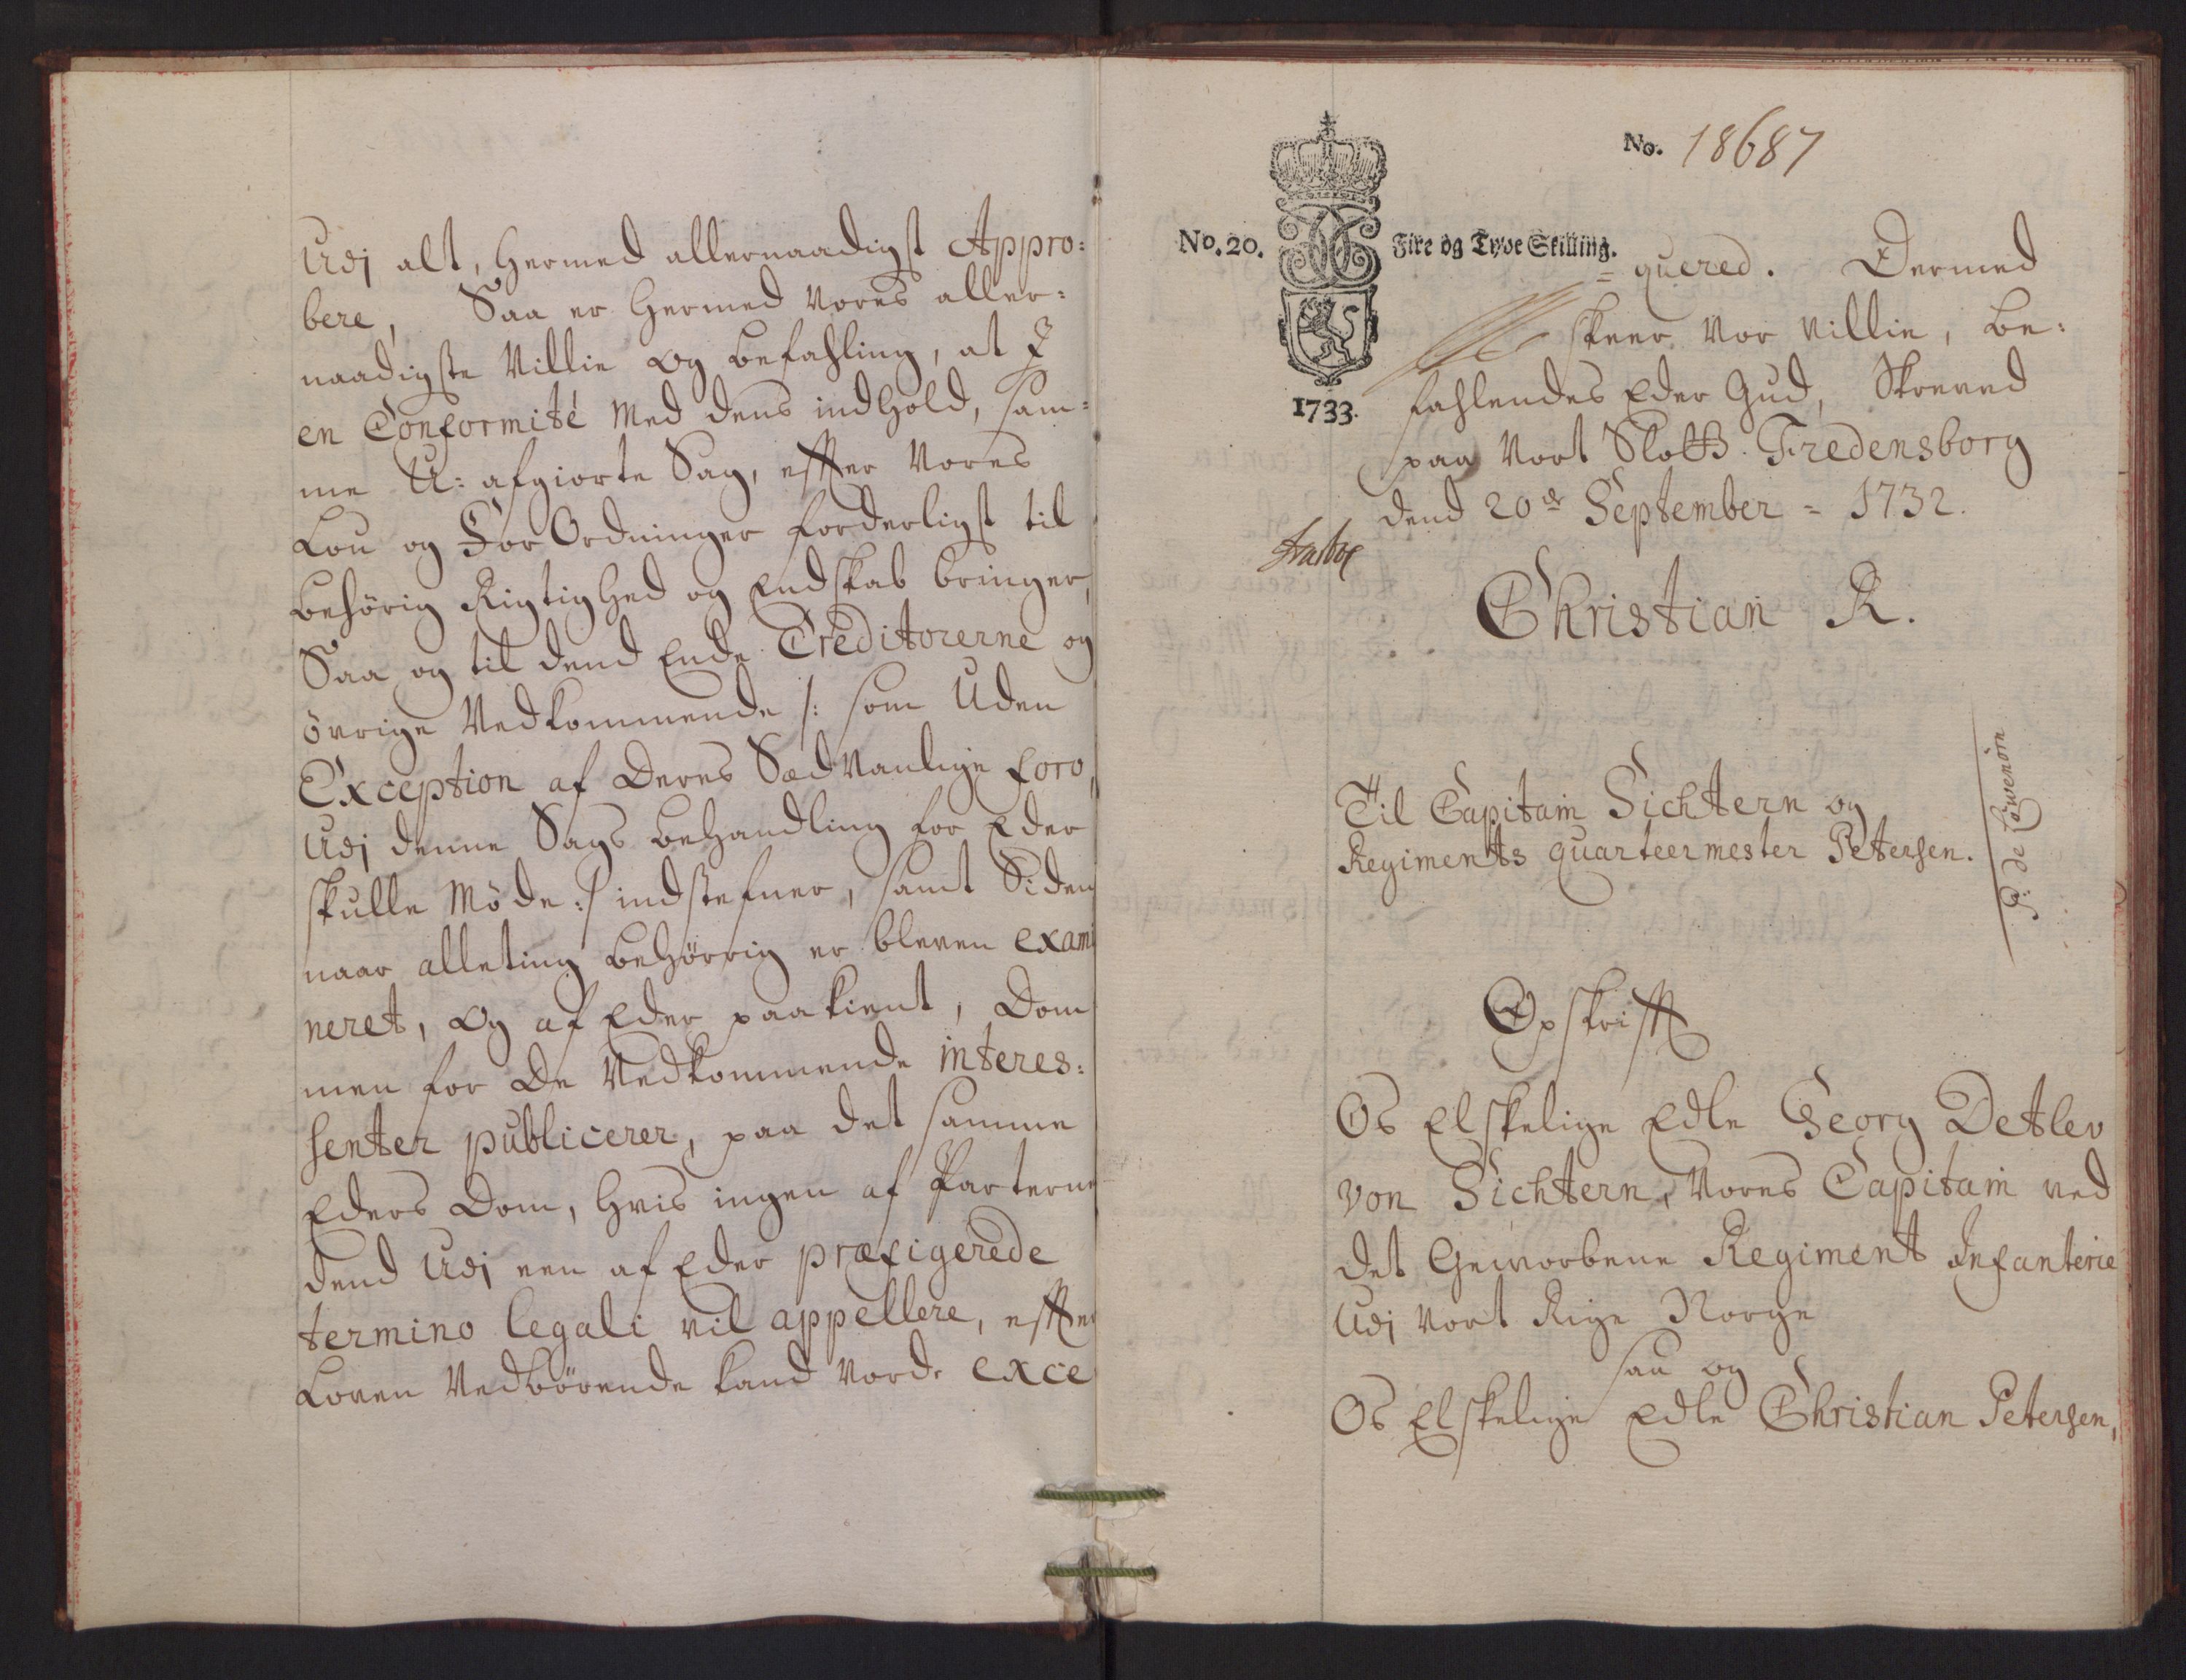 Udj alt, hermed allernaadigst Appro:
bere, Saa er hermed Vores aller:
naadigste Villie og befahling, at I
en Conformité med dens indhold, sam:
me U: afgiorte Sag, effter Vores
Lou og For Ordninger forderligst til
behörig Rigtighed og Endskab bringer,
Saa og til dend Ende Creditorerne og
övrige Vedkommende /: som Uden
Exception af deres Sædvanlige foro,
Udj denne Sags behandling for Eder
skulle Möde :/ indstefner, samt Siden
naar alleting behörrig er bleven exami
neret, og af Eder paakient, Dom
men for de Vedkommende interes:
senter publicerer, paa det samme
Eders Dom, hvis ingen af Parterne
dend Udj een af Eder præfigerede
termino legali vil appellere, effter
Loven Vedbörende kand vorde exce
No. 18687
No. 20. Fire og Tyve Skilling.
1733.
= quered. Dermed
skeer Vor villie, be:
fahlendes Eder Gud, Skreved
paa Vort Slott Fredensborg
dend 20de September = 1732.
Christian R.
P: de Löwenörn
Til Capitain Sichtern og
Regiments quarteermester Petersen.
Opskrifft
Os Elskelige Edle Georg Detlev
von Sichtern, Vores Capitain ved
det Geworbene Regiment Infanterie
Udj Vort Rige Norge
saa og
Os Elskelige Edle Christian Petersen,